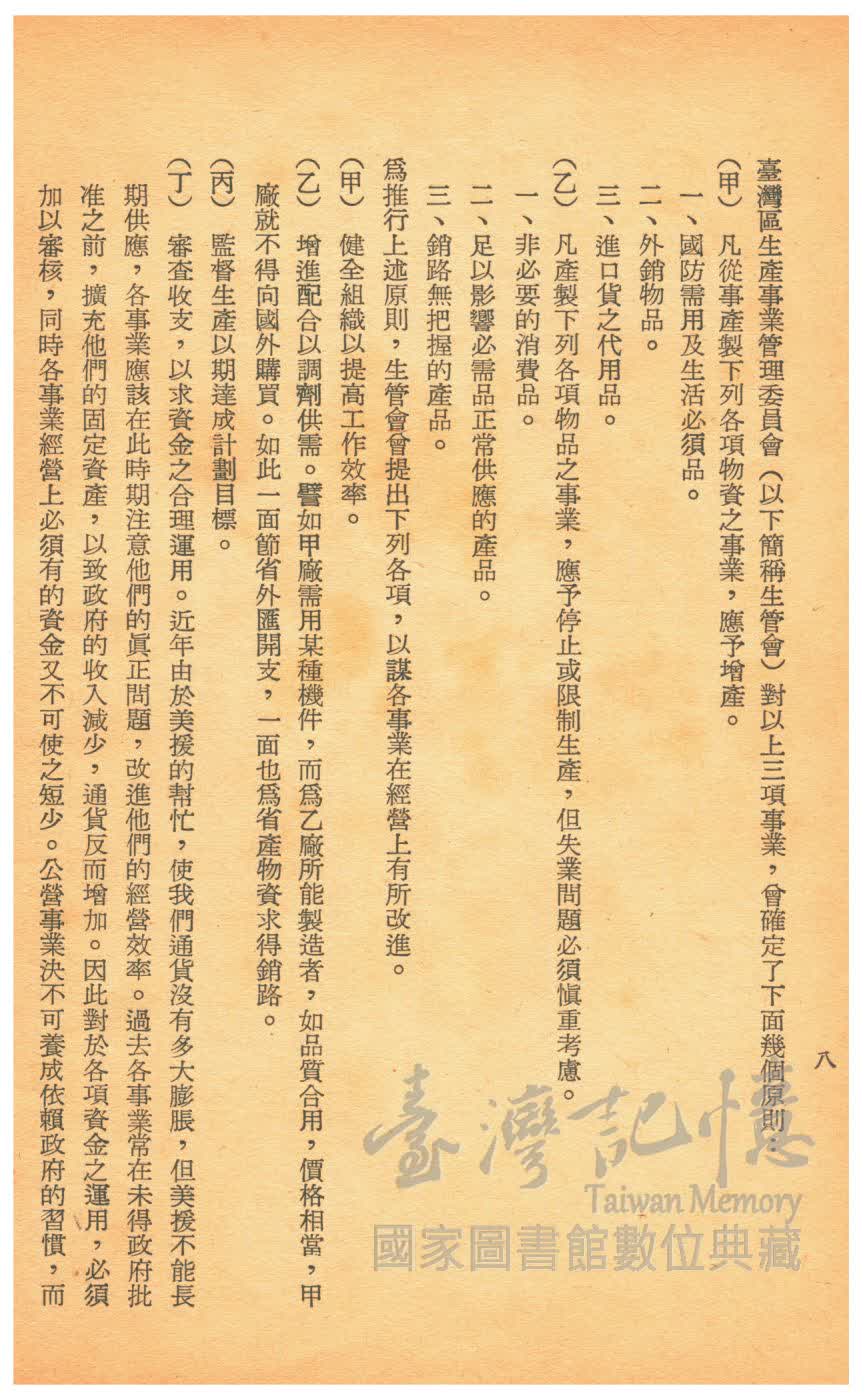 八
臺灣區生產事業管理委員會（以下簡稱生管會）對以上三項事業，曾確定了下面幾個原則：
（甲）凡從事產製下列各項物資之事業，應予增產。
一、國防需用及生活必須品。
二、外銷物品。
三、進口貨之代用品。
（乙）凡產製下列各項物品之事業，應予停止或限制生產，但失業問題必須慎重考慮。
一、非必要的消費品。
二、足以影響必需品正常供應的產品。
三、銷路無把握的產品。
爲推行上述原則，生管會曾提出下列各項，以謀各事業在經營上有所改進。
（甲）健全組織以提高工作效率。
（乙）增進配合以調劑供需。譬如甲廠需用某種機件，而爲乙廠所能製造者，如品質合用，價格相當，甲
廠就不得向國外購買。如此一面節省外匯開支，一面也爲省產物資求得銷路。
（丙）監督生產以期達成計劃目標。
（丁）審查收支，以求資金之合理運用。近年由於美援的幫忙，使我們通貨沒有多大膨脹，但美援不能長
期供應，各事業應該在此時期注意他們的眞正問題，改進他們的經營效率。過去各事業常在未得政府批
准之前，擴充他們的固定資產，以致政府的收入減少，通貨反而增加。因此對於各項資金之運用，必須
加以審核，同時各事業經營上必須有的資金又不可使之短少。公營事業決不可養成依賴政府的習慣，而
臺灣記憶
Taiwan Memory
國家圖書館數位典藏